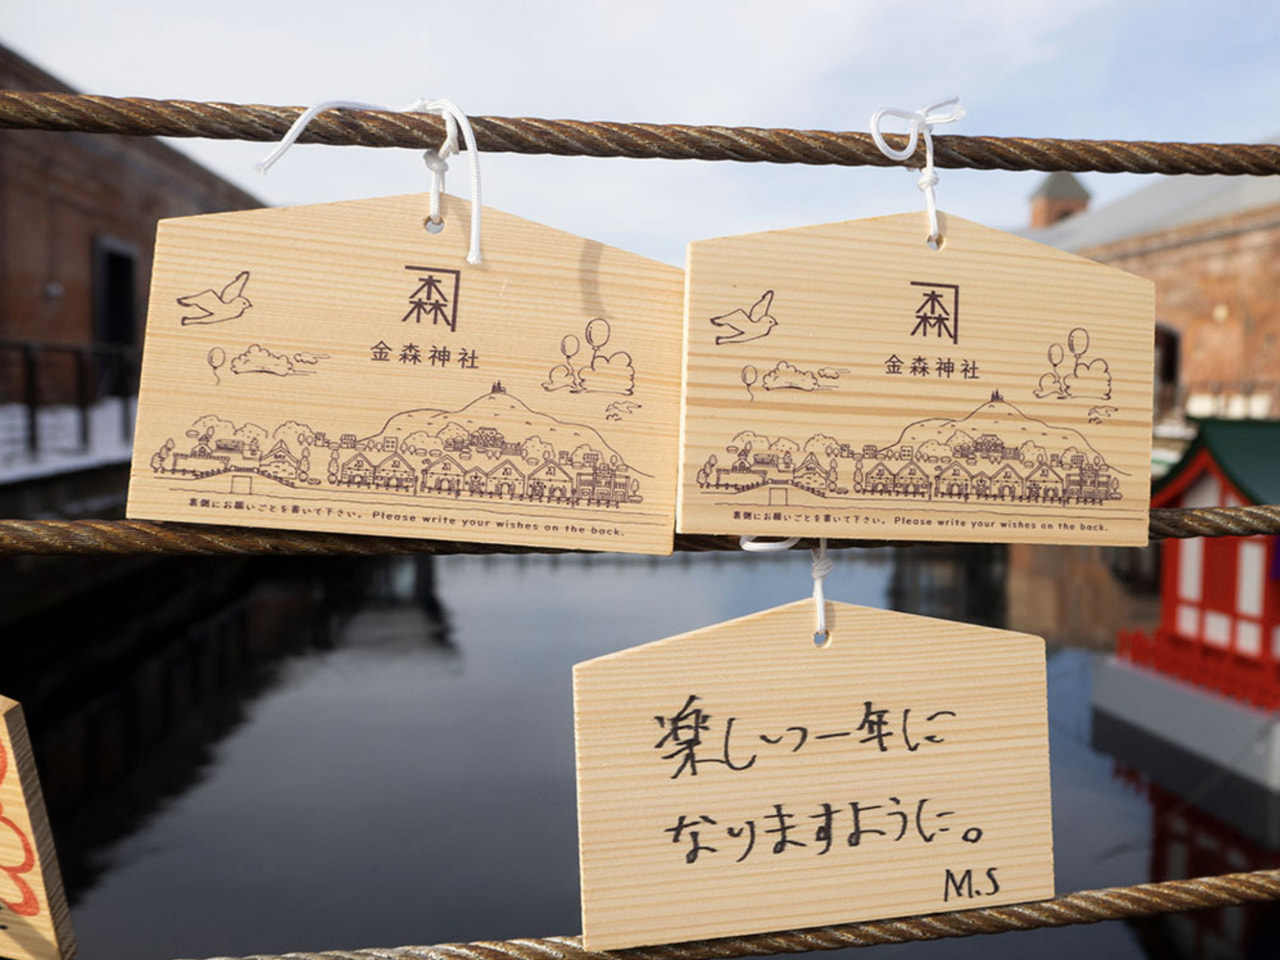 森
金森神社
裏側にお願いごとを書いて下さい。Please write your wishes on the back.
森
金森神社
裏側にお願いごとを書いて下さい。Please write your wishes on the back.
楽しい一年に
なりますように。
M.S